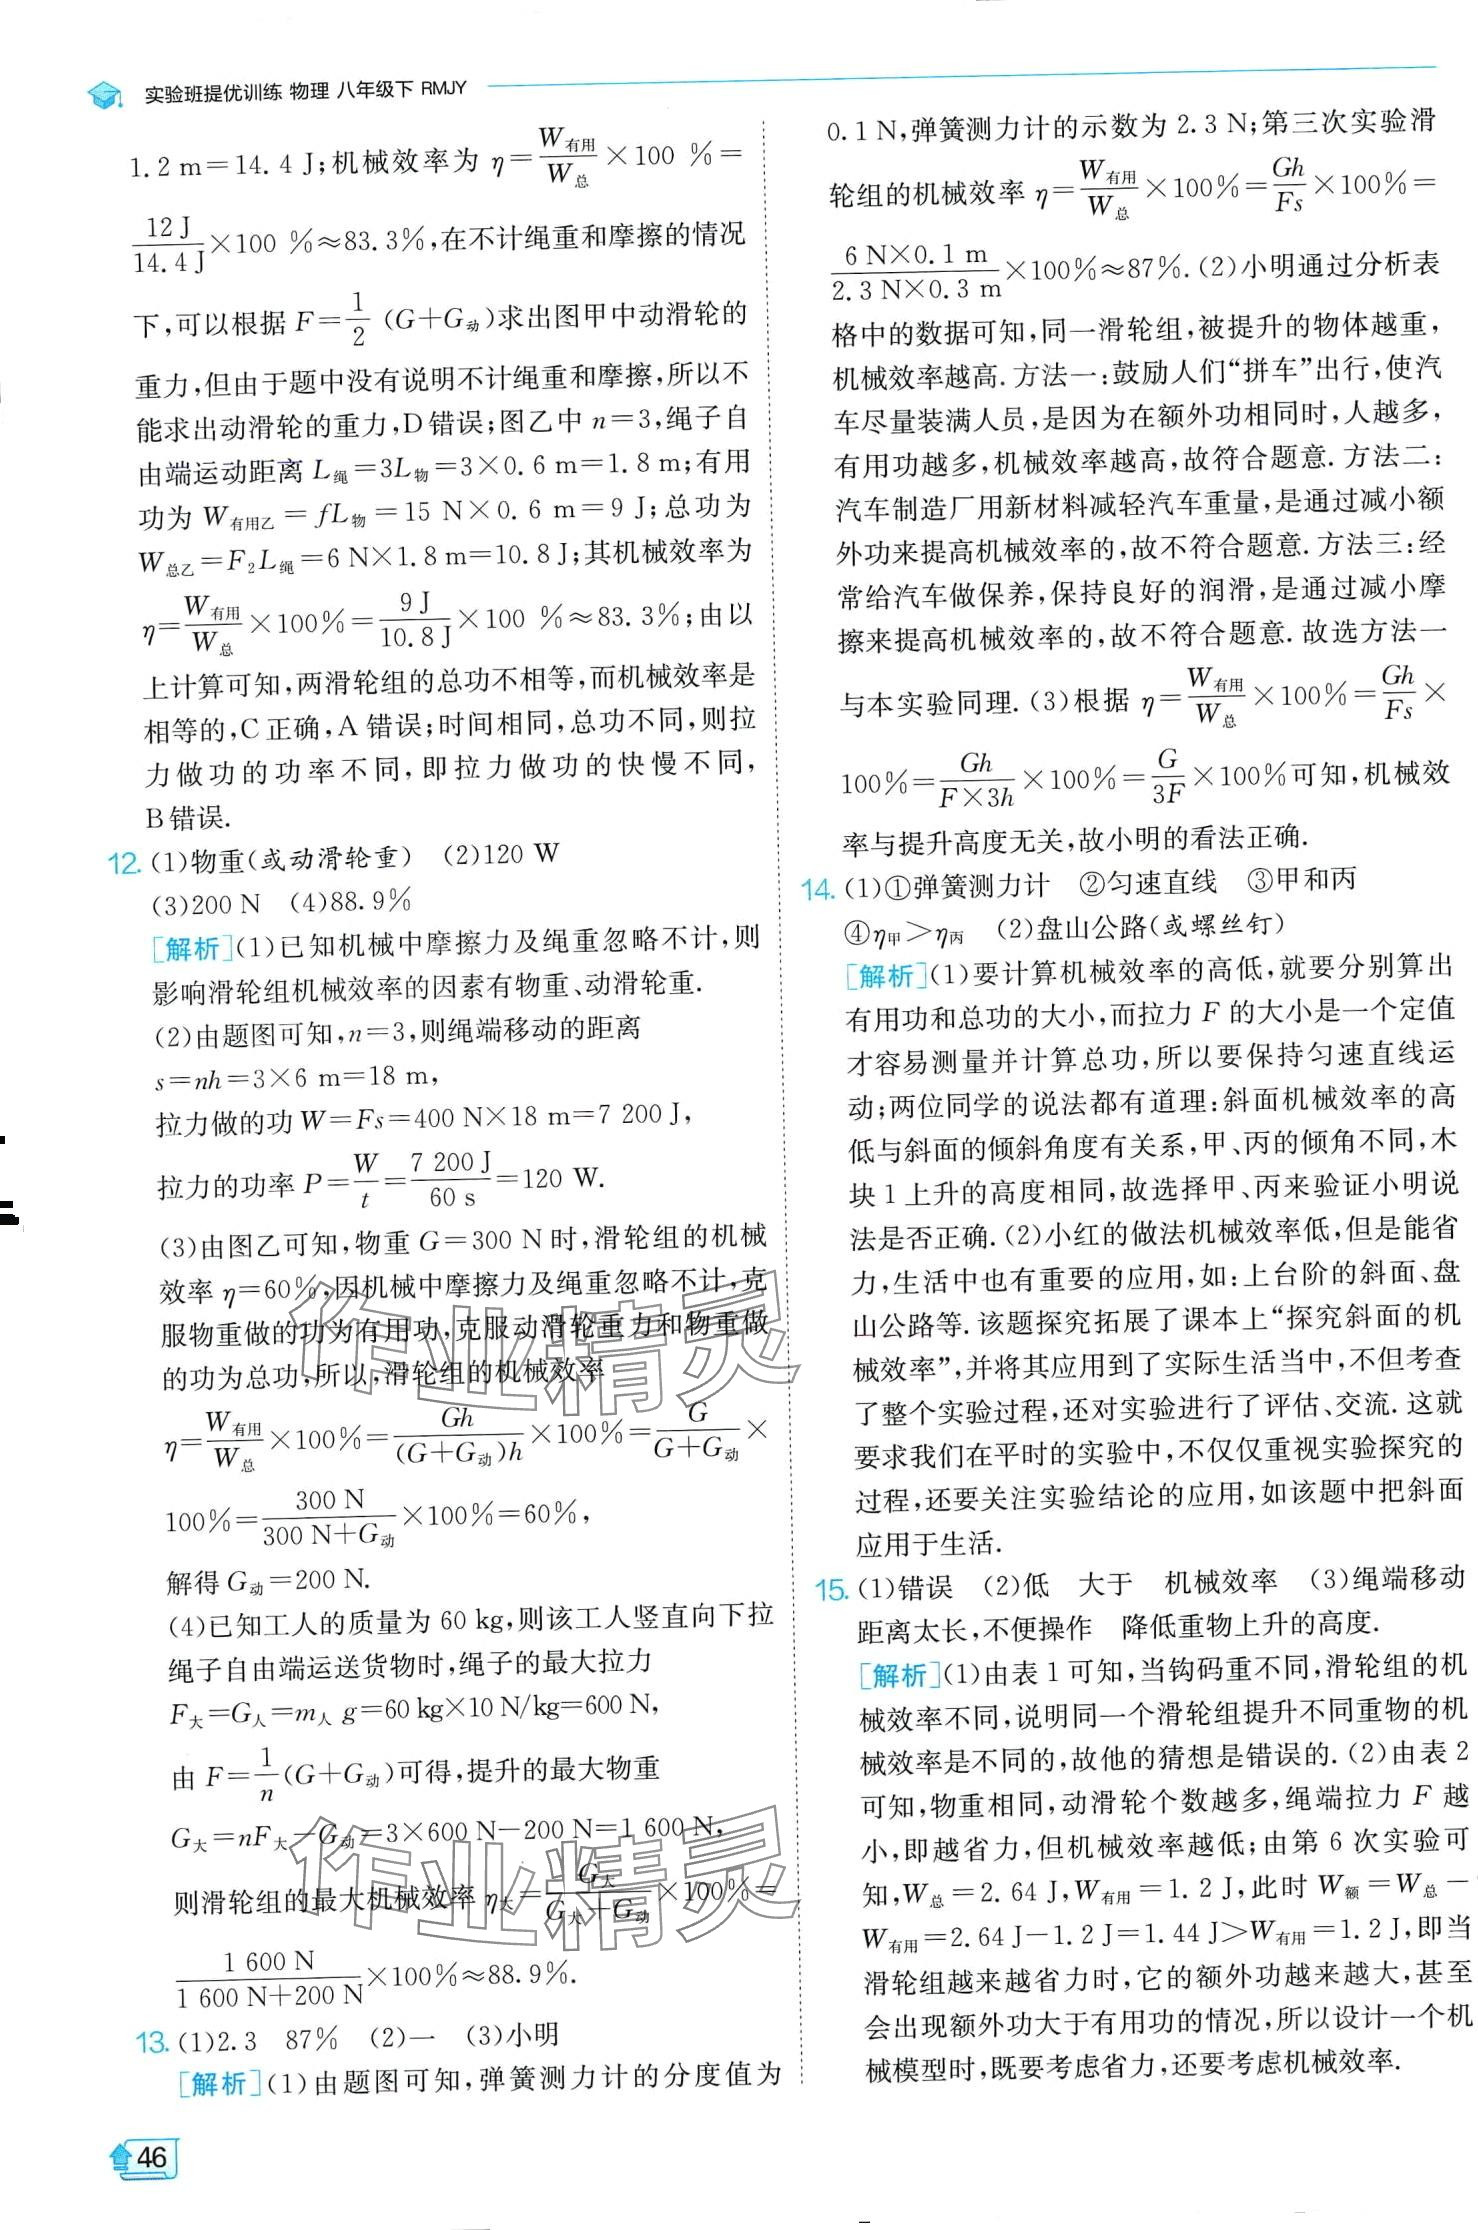 实验班提优训练 物理 八年级下 RMJY
1.2 m=14.4 J;机械效率为 η=W有用/W总×100 %=
12 J/14.4 J×100 %≈83.3%,在不计绳重和摩擦的情况
下,可以根据 F=1/2 (G+G动)求出图甲中动滑轮的
重力,但由于题中没有说明不计绳重和摩擦,所以不
能求出动滑轮的重力,D错误;图乙中 n=3,绳子自
由端运动距离 L绳=3L物=3×0.6 m=1.8 m;有用
功为 W有用乙=fL物=15 N×0.6 m=9 J;总功为
W总乙=F₂L绳=6 N×1.8 m=10.8 J;其机械效率为
η=W有用/W总×100%=9 J/10.8 J×100 %≈83.3%;由以
上计算可知,两滑轮组的总功不相等,而机械效率是
相等的,C正确,A错误;时间相同,总功不同,则拉
力做功的功率不同,即拉力做功的快慢不同,
B错误.
12. (1)物重(或动滑轮重) (2)120 W
(3)200 N (4)88.9%
[解析](1)已知机械中摩擦力及绳重忽略不计,则
影响滑轮组机械效率的因素有物重、动滑轮重.
(2)由题图可知,n=3,则绳端移动的距离
s=nh=3×6 m=18 m,
拉力做的功 W=Fs=400 N×18 m=7 200 J,
拉力的功率 P=W/t=7 200 J/60 s=120 W.
(3)由图乙可知,物重 G=300 N时,滑轮组的机械
效率 η=60%,因机械中摩擦力及绳重忽略不计,克
服物重做的功为有用功,克服动滑轮重力和物重做
的功为总功,所以,滑轮组的机械效率
η=W有用/W总×100%=Gh/(G+G动)h×100%=G/G+G动×
100%=300 N/300 N+G动×100%=60%,
解得 G动=200 N.
(4)已知工人的质量为 60 kg,则该工人竖直向下拉
绳子自由端运送货物时,绳子的最大拉力
F大=G人=m人 g=60 kg×10 N/kg=600 N,
由 F=1/n(G+G动)可得,提升的最大物重
G大=nF大-G动=3×600 N-200 N=1 600 N,
则滑轮组的最大机械效率 η大=G大/G大+G动×100%=
1 600 N/1 600 N+200 N×100%≈88.9%.
13. (1)2.3 87% (2)一 (3)小明
[解析](1)由题图可知,弹簧测力计的分度值为
46
0.1 N,弹簧测力计的示数为 2.3 N;第三次实验滑
轮组的机械效率 η=W有用/W总×100%=Gh/Fs×100%=
6 N×0.1 m/2.3 N×0.3 m×100%≈87%.(2)小明通过分析表
格中的数据可知,同一滑轮组,被提升的物体越重,
机械效率越高.方法一:鼓励人们“拼车”出行,使汽
车尽量装满人员,是因为在额外功相同时,人越多,
有用功越多,机械效率越高,故符合题意.方法二:
汽车制造厂用新材料减轻汽车重量,是通过减小额
外功来提高机械效率的,故不符合题意.方法三:经
常给汽车做保养,保持良好的润滑,是通过减小摩
擦来提高机械效率的,故不符合题意.故选方法一
与本实验同理.(3)根据 η=W有用/W总×100%=Gh/Fs×
100%=Gh/F×3h×100%=G/3F×100%可知,机械效
率与提升高度无关,故小明的看法正确.
14. (1)①弹簧测力计 ②匀速直线 ③甲和丙
④η甲>η丙 (2)盘山公路(或螺丝钉)
[解析](1)要计算机械效率的高低,就要分别算出
有用功和总功的大小,而拉力 F 的大小是一个定值
才容易测量并计算总功,所以要保持匀速直线运
动;两位同学的说法都有道理:斜面机械效率的高
低与斜面的倾斜角度有关系,甲、丙的倾角不同,木
块1上升的高度相同,故选择甲、丙来验证小明说
法是否正确.(2)小红的做法机械效率低,但是能省
力,生活中也有重要的应用,如:上台阶的斜面、盘
山公路等.该题探究拓展了课本上“探究斜面的机
械效率”,并将其应用到了实际生活当中,不但考查
了整个实验过程,还对实验进行了评估、交流.这就
要求我们在平时的实验中,不仅仅重视实验探究的
过程,还要关注实验结论的应用,如该题中把斜面
应用于生活.
15. (1)错误 (2)低 大于 机械效率 (3)绳端移动
距离太长,不便操作 降低重物上升的高度.
[解析](1)由表1可知,当钩码重不同,滑轮组的机
械效率不同,说明同一个滑轮组提升不同重物的机
械效率是不同的,故他的猜想是错误的.(2)由表2
可知,物重相同,动滑轮个数越多,绳端拉力 F 越
小,即越省力,但机械效率越低;由第6次实验可
知,W总=2.64 J,W有用=1.2 J,此时 W额=W总-
W有用=2.64 J-1.2 J=1.44 J>W有用=1.2 J,即当
滑轮组越来越省力时,它的额外功越来越大,甚至
会出现额外功大于有用功的情况,所以设计一个机
械模型时,既要考虑省力,还要考虑机械效率.
作业精灵
作业精灵